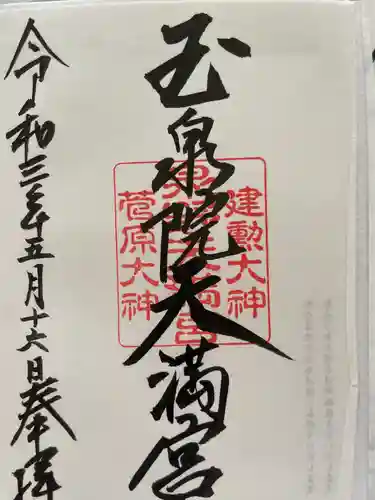 玉泉院天満宮
建勲大神
菅原大神
令和三年五月十六日奉拝